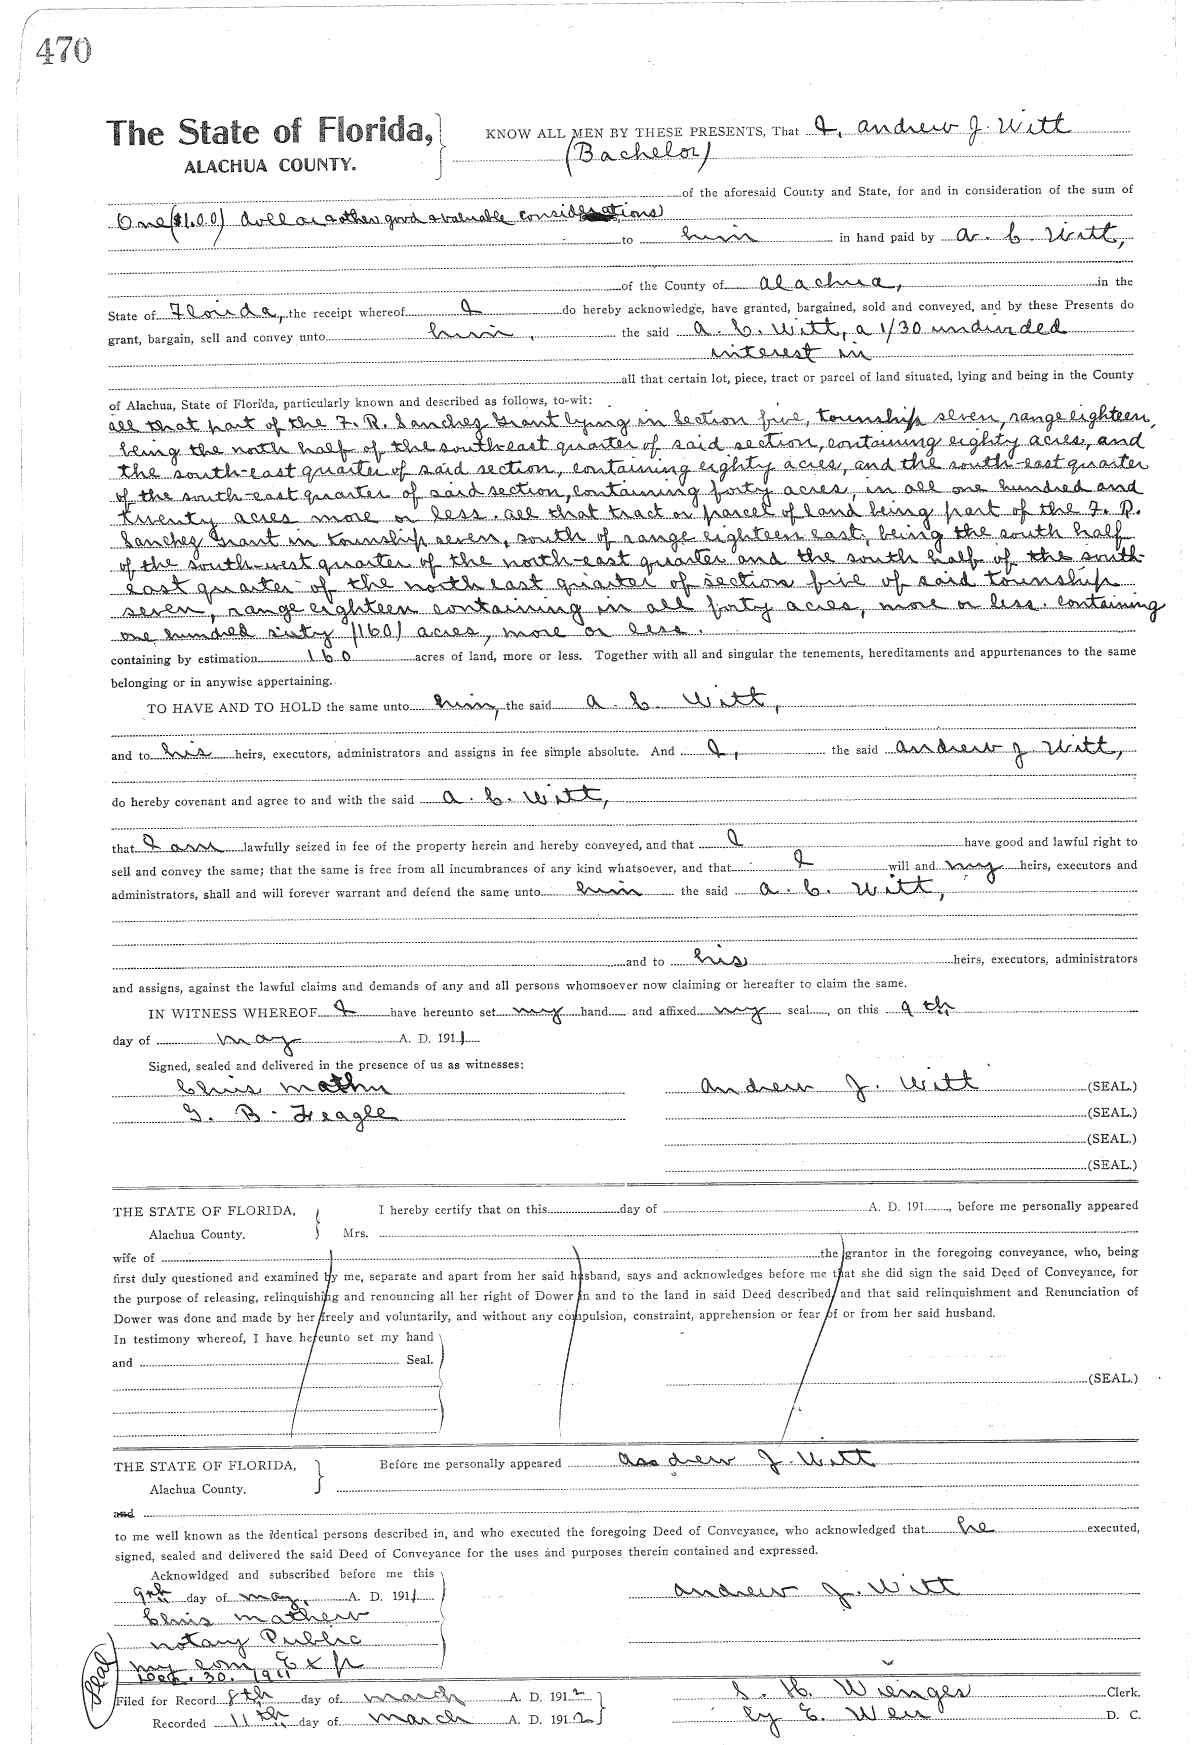 470
The State of Florida,
ALACHUA COUNTY.
KNOW ALL MEN BY THESE PRESENTS, That I, Andrew J. Witt
(Bachelor)
of the aforesaid County and State, for and in consideration of the sum of
One ($1.00) dollar & other good & valuable considerations
to him in hand paid by A. C. Witt,
of the County of Alachua, in the
State of Florida, the receipt whereof I do hereby acknowledge, have granted, bargained, sold and conveyed, and by these Presents do
grant, bargain, sell and convey unto him, the said A. C. Witt, a 1/30 undivided
interest in
all that certain lot, piece, tract or parcel of land situated, lying and being in the County
of Alachua, State of Florida, particularly known and described as follows, to-wit:
all that part of the F. R. Sanchez Grant lying in Section five, township seven, range eighteen,
being the north half of the south-east quarter of said section, containing eighty acres, and
the south-east quarter of said section, containing eighty acres, and the south-east quarter
of the south-east quarter of said section, containing forty acres, in all one hundred and
twenty acres more or less. all that tract or parcel of land being part of the F. R.
Sanchez Grant in township seven, south of range eighteen east, being the south half
of the south-west quarter of the north-east quarter and the south half of the south-
east quarter of the north east quarter of section five of said township
seven, range eighteen containing in all forty acres, more or less. containing
one hundred sixty (160) acres, more or less.
containing by estimation 160 acres of land, more or less. Together with all and singular the tenements, hereditaments and appurtenances to the same
belonging or in anywise appertaining.
TO HAVE AND TO HOLD the same unto him, the said A. C. Witt,
and to his heirs, executors, administrators and assigns in fee simple absolute. And I, the said Andrew J. Witt,
do hereby covenant and agree to and with the said A. C. Witt,
that I am lawfully seized in fee of the property herein and hereby conveyed, and that I have good and lawful right to
sell and convey the same; that the same is free from all incumbrances of any kind whatsoever, and that I will and my heirs, executors and
administrators, shall and will forever warrant and defend the same unto him the said A. C. Witt,
and to his heirs, executors, administrators
and assigns, against the lawful claims and demands of any and all persons whomsoever now claiming or hereafter to claim the same.
IN WITNESS WHEREOF I have hereunto set my hand and affixed my seal, on this 9th
day of May A. D. 1911
Signed, sealed and delivered in the presence of us as witnesses:
Chris Andrew J. Witt (SEAL.)
G. B. Feagle (SEAL.)
(SEAL.)
(SEAL.)
THE STATE OF FLORIDA, I hereby certify that on this day of A. D. 191 , before me personally appeared
Alachua County. Mrs.
wife of the grantor in the foregoing conveyance, who, being
first duly questioned and examined by me, separate and apart from her said husband, says and acknowledges before me that she did sign the said Deed of Conveyance, for
the purpose of releasing, relinquishing and renouncing all her right of Dower in and to the land in said Deed described, and that said relinquishment and Renunciation of
Dower was done and made by her freely and voluntarily, and without any compulsion, constraint, apprehension or fear of or from her said husband.
In testimony whereof, I have hereunto set my hand
and Seal.
(SEAL.)
THE STATE OF FLORIDA, Before me personally appeared Andrew J. Witt
Alachua County.
and
to me well known as the identical persons described in, and who executed the foregoing Deed of Conveyance, who acknowledged that he executed,
signed, sealed and delivered the said Deed of Conveyance for the uses and purposes therein contained and expressed.
Acknowldged and subscribed before me this
9th day of May, A. D. 1911 Andrew J. Witt
Chris Mathew
Notary Public
my com Exp
Dec. 30. 1911
Seal
Filed for Record 8th day of March A. D. 1912 S. H. Wienges Clerk.
Recorded 11th day of March A. D. 1912 by E. D. C.